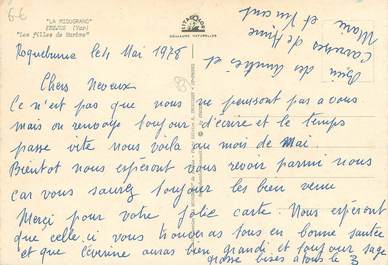 6-6
"LA MIOUGRANO"
FREJUS (Var)
"Les filles de Nurètto"
COULEURS NATURELLES
Roquebrune le 4 Mai 1978
Chers Neveux
Ce n'est pas que nous ne pensont pas a vous
mais on renvoye toujour d'écrire et le temps
passe vite nous voila au mois de Mai.
Bientot nous espéront vous revoir parmi nous
car vous saurez toujour les bien venu
Merçi pour votre jolie carte. Nous espéront
que celle ci vous trouveras tous en bonne santée
et que Céverine auras bien grandi et toujour sage
grosse bises a tous le 3
et Vincent
Marie